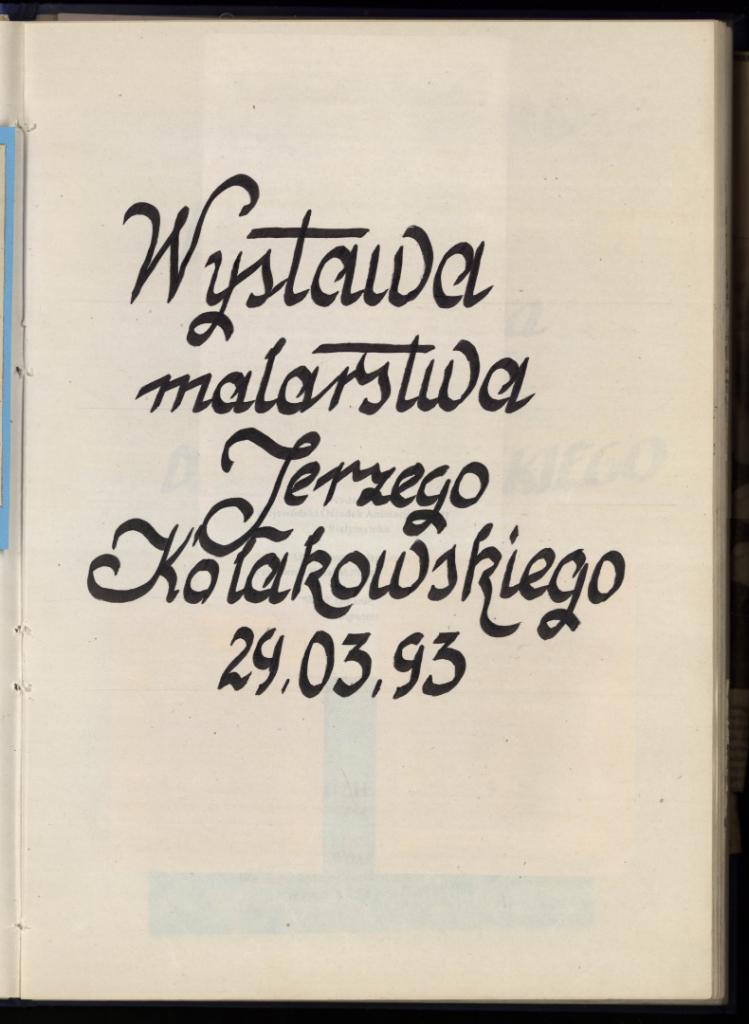 Wystawa
malarstwa
Jerzego
Kołakowskiego
29.03.93
KIEGO